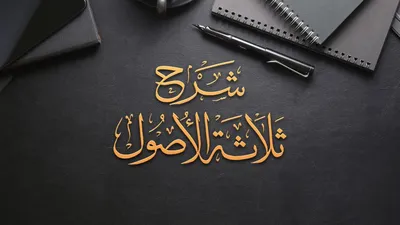 شرح
ثلاثة الأصول